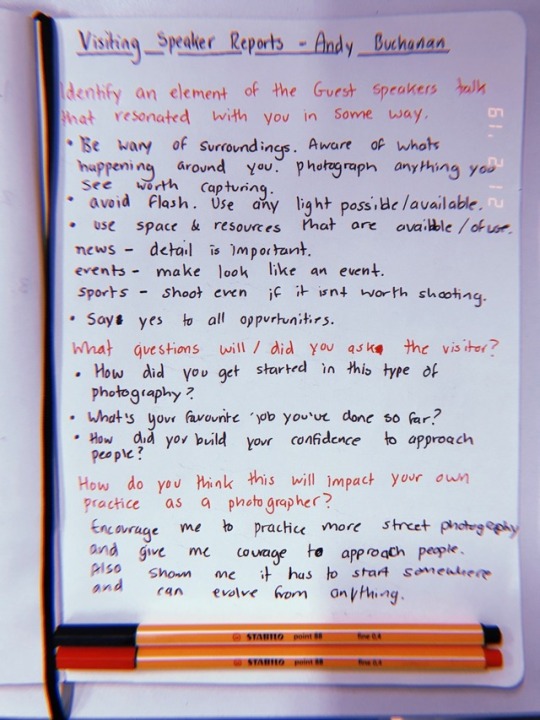 Visiting Speaker Reports - Andy Buchanan
Identify an element of the Guest speakers talk
that resonated with you in some way.
• Be wary of surroundings. Aware of whats
happening around you. photograph anything you
see worth capturing.
• avoid flash. Use any light possible/available.
• use space & resources that are availble / of use.
news - detail is important.
events - make look like an event.
sports - shoot even if it isnt worth shooting.
• Say yes to all oppurtunities.
What questions will / did you ask the visitor?
• How did you get started in this type of
photography?
• What's your favourite job you've done so far?
• How did you build your confidence to approach
people?
How do you think this will impact your own
practice as a photographer?
Encourage me to practice more street photography
and give me courage to approach people.
Also shown me it has to start somewhere
and can evolve from anything.
STABILO point 88 fine 0,4
STABILO point 88 fine 0,4